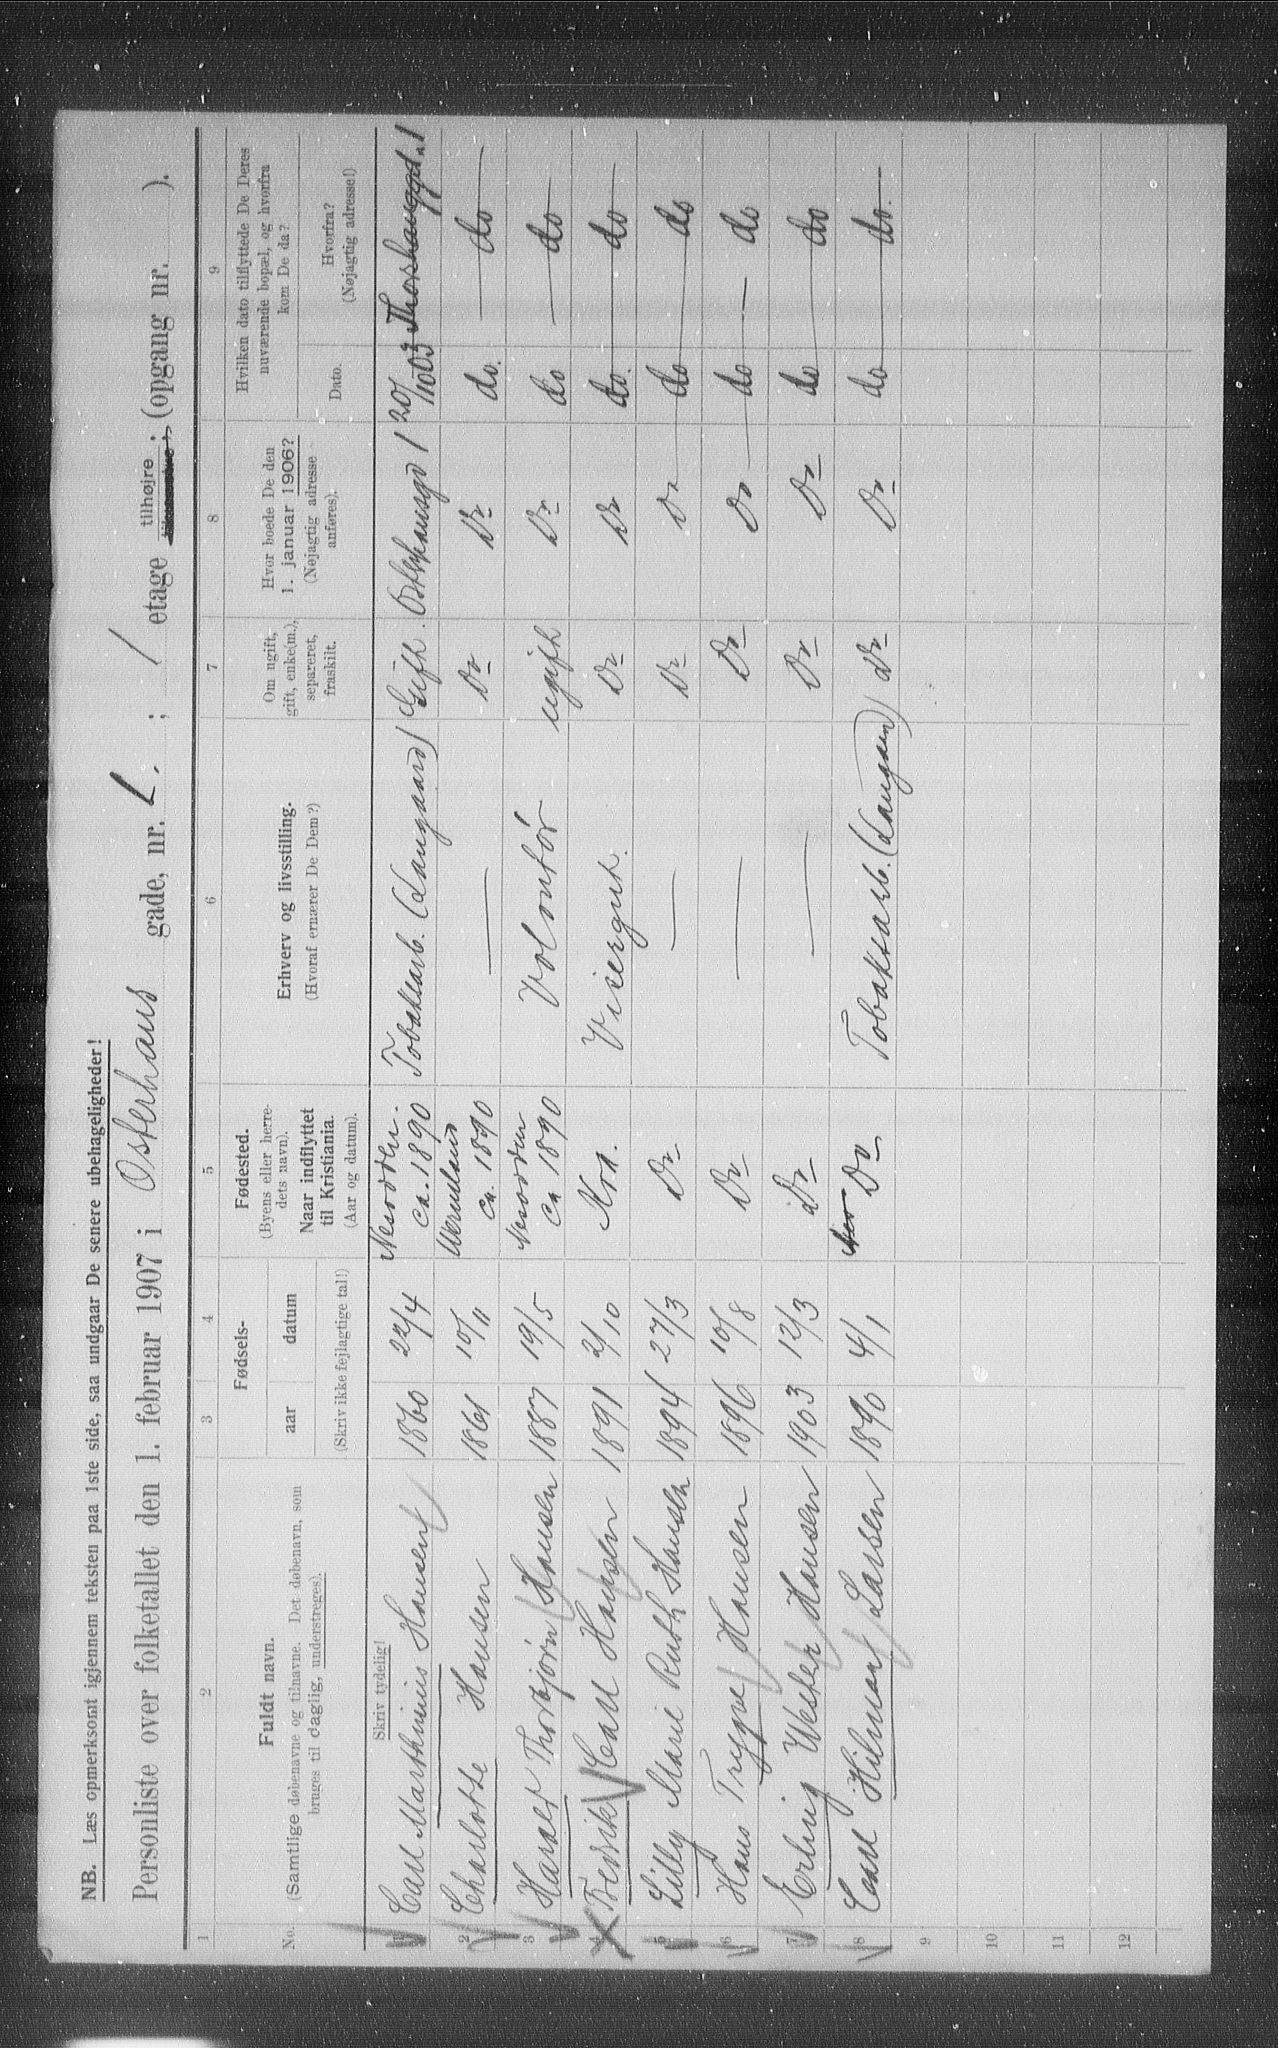 NB. Læs opmerksomt igjennem teksten paa 1ste side, saa undgaar De senere ubehageligheder!
Personliste over folketallet den 1. februar 1907 i Osterhaus gade, nr. 1. ; 1 etage tilhøjre ; (opgang nr. ).
1 2 3 4 5 6 7 8 9
No.
Fuldt navn.
(Samtlige døbenavne og tilnavne. Det døbenavn, som
bruges til daglig, understreges).
Skriv tydelig!
Fødsels-
aar datum
(Skriv ikke fejlagtige tal!)
Fødested.
(Byens eller herre-
dets navn).
Naar indflyttet
til Kristiania.
(Aar og datum).
Erhverv og livsstilling.
(Hvoraf ernærer De Dem?)
Om ugift,
gift, enke(m.),
separeret,
fraskilt.
Hvor boede De den
1. januar 1906?
(Nøjagtig adresse
anføres).
Hvilken dato tilflyttede De Deres
nuværende bopæl, og hvorfra
kom De da?
Dato.
Hvorfra?
(Nøjagtig adresse!)
1 Carl Marthinius Hansen 1860 22/4 Nesodden. ca. 1890 Tobaksarb. (Langaard) Gift. Osterhausgd 1 20/10 03
2 Charlotte Hansen 1861 10/11 Wermland ca. 1890 — Do Do do. — do —
3 Harald Thorbjørn Hansen 1887 19/5 Nesodden ca 1890 Volontør ugift Do do — do —
4 Fredrik Carl Hansen 1891 2/10 Kra. Visergut. Do Do do. — do —
5 Lilly Marie Ruth Hansen 1894 27/3 Do — Do Do do do
6 Hans Trygve Hansen 1896 10/8 Do — Do Do do — do
7 Erling Hansen 1903 12/3 Do — Do Do do do
8 Carl Hilmar Larsen 1890 4/1 Do Tobaksarb. (Langaard) Do Do do do. —
9
10
11
12